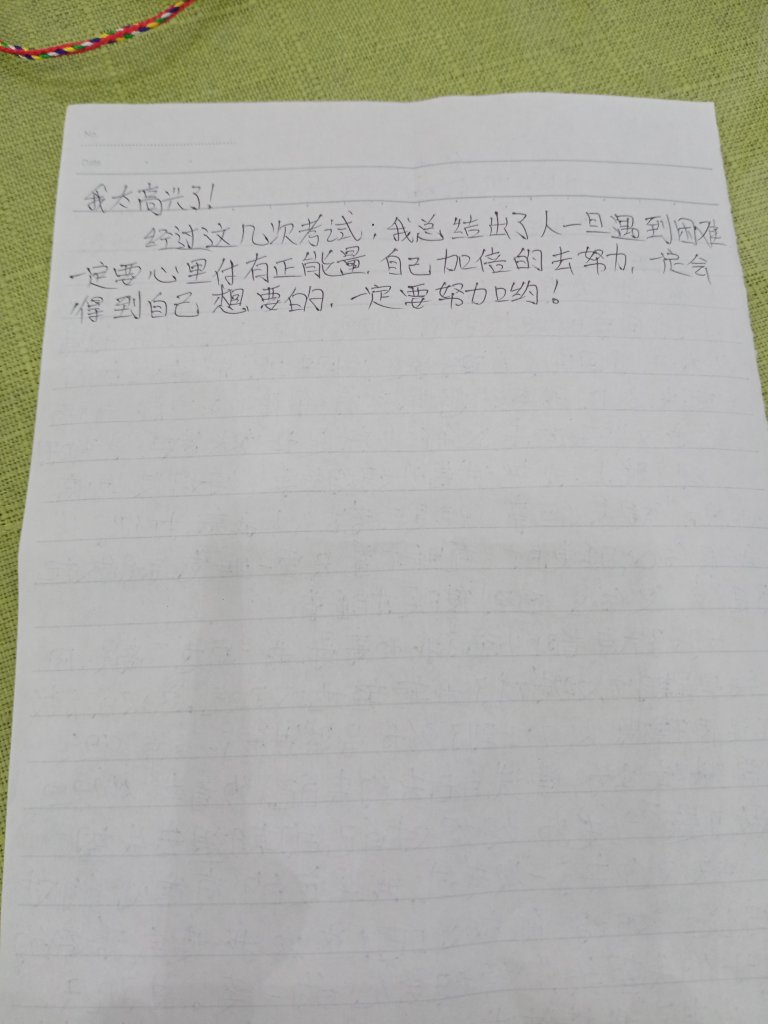 No.
Date
我太高兴了!
经过这几次考试;我总结出了人一旦遇到困难
一定要心里付有正能量,自己加倍的去努力,一定会
得到自己想要的,一定要努力哟!